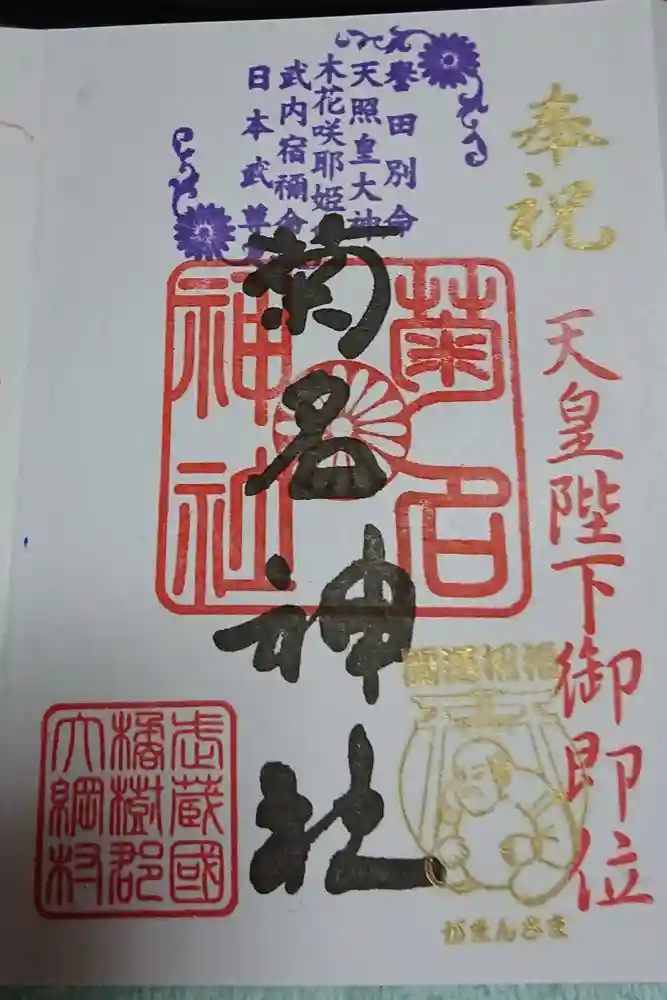 奉祝
天皇陛下御即位
譽田別命
天照皇大神
木花咲耶姫
武内宿禰命
日本武尊
菊名
神社
菊名神社
開運招福
がまんさま
武蔵國
橘樹郡
大綱村